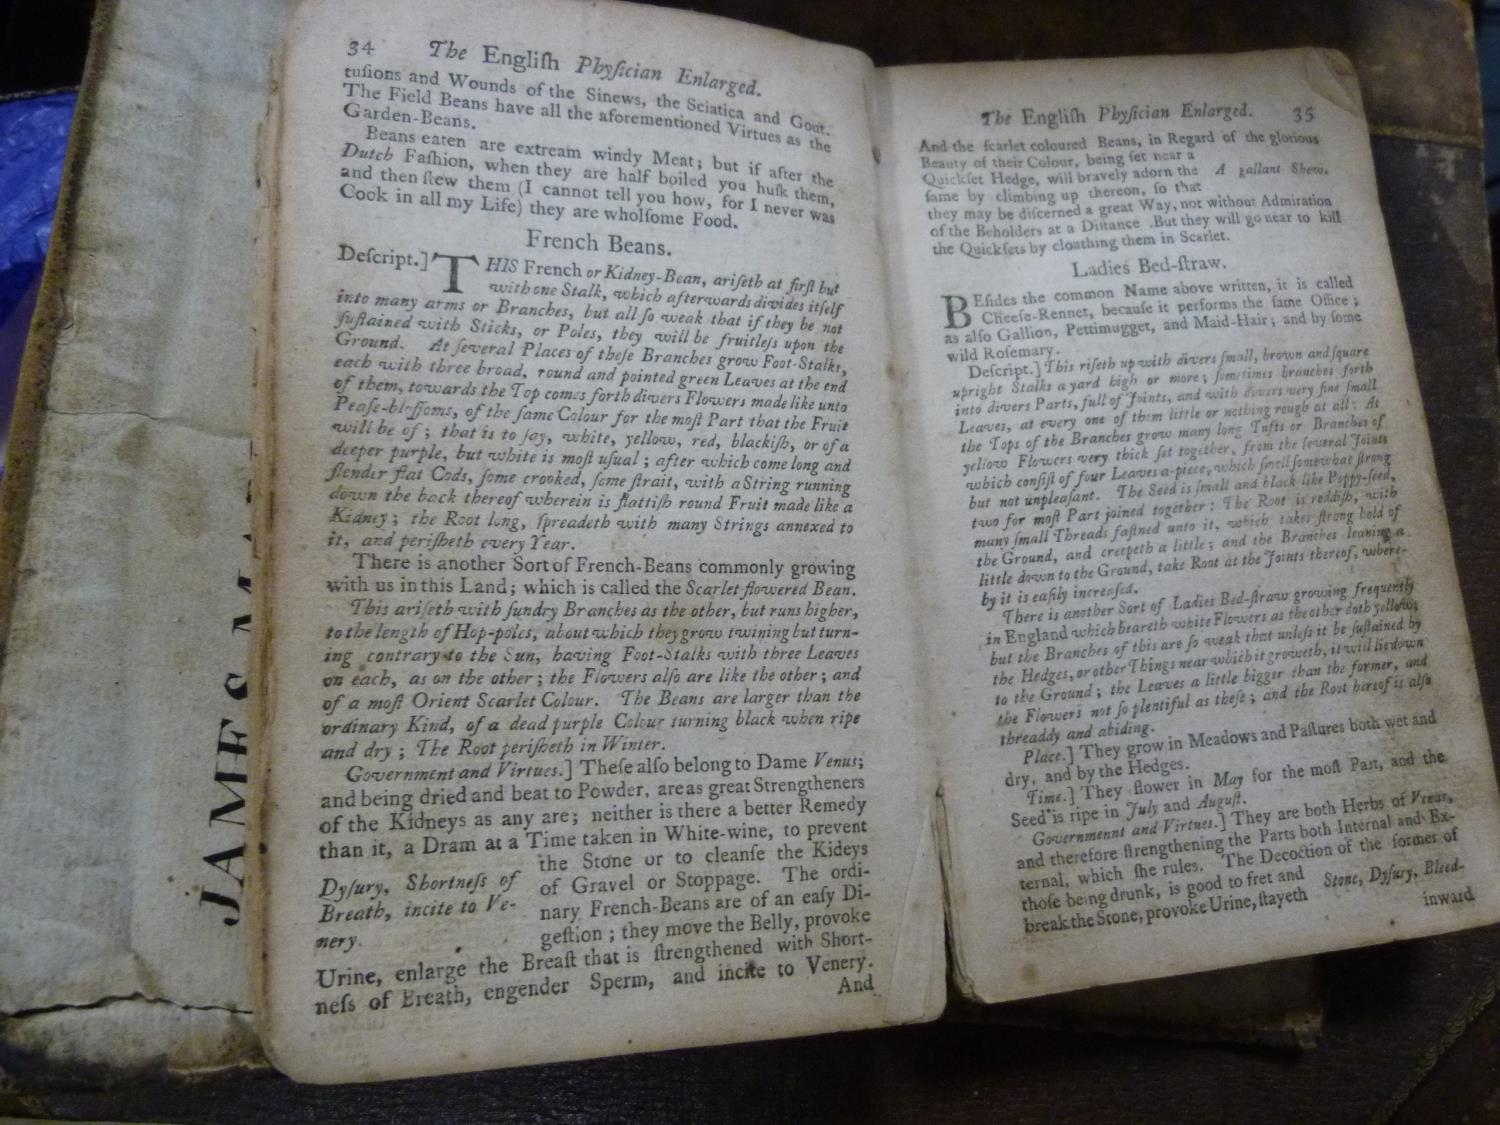 JAMES MA
34 The Engliſh Phyſician Enlarged.
tuſions and Wounds of the Sinews, the Sciatica and Gout.
The Field Beans have all the aforementioned Virtues as the
Garden-Beans.
Beans eaten are extream windy Meat; but if after the
Dutch Faſhion, when they are half boiled you huſk them,
and then ſtew them (I cannot tell you how, for I never was
Cook in all my Life) they are wholſome Food.
French Beans.
Deſcript.] THIS French or Kidney-Bean, ariſeth at firſt but
with one Stalk, which afterwards divides itſelf
into many arms or Branches, but all ſo weak that if they be not
ſuſtained with Sticks, or Poles, they will be fruitleſs upon the
Ground. At ſeveral Places of theſe Branches grow Foot-Stalks,
each with three broad, round and pointed green Leaves at the end
of them, towards the Top comes forth divers Flowers made like unto
Peaſe-bloſſoms, of the ſame Colour for the moſt Part that the Fruit
will be of; that is to ſay, white, yellow, red, blackiſh, or of a
deeper purple, but white is moſt uſual; after which come long and
ſlender flat Cods, ſome crooked, ſome ſtrait, with a String running
down the back thereof wherein is flattiſh round Fruit made like a
Kidney; the Root long, ſpreadeth with many Strings annexed to
it, and periſheth every Year.
There is another Sort of French-Beans commonly growing
with us in this Land; which is called the Scarlet flowered Bean.
This ariſeth with ſundry Branches as the other, but runs higher,
to the length of Hop-poles, about which they grow twining but turn-
ing contrary to the Sun, having Foot-Stalks with three Leaves
on each, as on the other; the Flowers alſo are like the other; and
of a moſt Orient Scarlet Colour. The Beans are larger than the
ordinary Kind, of a dead purple Colour turning black when ripe
and dry; The Root periſheth in Winter.
Government and Virtues.] Theſe alſo belong to Dame Venus;
and being dried and beat to Powder, are as great Strengtheners
of the Kidneys as any are; neither is there a better Remedy
than it, a Dram at a Time taken in White-wine, to prevent
the Stone or to cleanſe the Kideys
Dyſury, Shortneſs of of Gravel or Stoppage. The ordi-
Breath, incite to Ve- nary French-Beans are of an eaſy Di-
nery. geſtion; they move the Belly, provoke
Urine, enlarge the Breaſt that is ſtrengthened with Short-
neſs of Breath, engender Sperm, and incite to Venery.
And
The Engliſh Phyſician Enlarged. 35
And the ſcarlet coloured Beans, in Regard of the glorious
Beauty of their Colour, being ſet near a
Quickſet Hedge, will bravely adorn the A gallant Shew.
ſame by climbing up thereon, ſo that
they may be diſcerned a great Way, not without Admiration
of the Beholders at a Diſtance .But they will go near to kill
the Quickſets by cloathing them in Scarlet.
Ladies Bed-ſtraw.
BEſides the common Name above written, it is called
Cheeſe-Rennet, becauſe it performs the ſame Office;
as alſo Gallion, Pettimugget, and Maid-Hair; and by ſome
wild Roſemary.
Deſcript.] This riſeth up with divers ſmall, brown and ſquare
upright Stalks a yard high or more; ſometimes branches forth
into divers Parts, full of Joints, and with divers very fine ſmall
Leaves, at every one of them little or nothing rough at all: At
the Tops of the Branches grow many long Tufts or Branches of
yellow Flowers very thick ſet together, from the ſeveral Joints
which conſiſt of four Leaves a-piece, which ſmell ſomewhat ſtrong
but not unpleaſant. The Seed is ſmall and black like Poppy-ſeed,
two for moſt Part joined together: The Root is reddiſh, with
many ſmall Threads faſtned unto it, which takes ſtrong hold of
the Ground, and creepeth a little; and the Branches leaning a
little down to the Ground, take Root at the Joints thereof, where-
by it is eaſily increaſed.
There is another Sort of Ladies Bed-ſtraw growing frequently
in England which beareth white Flowers as the other doth yellow;
but the Branches of this are ſo weak that unleſs it be ſuſtained by
the Hedges, or other Things near which it groweth, it will lie down
to the Ground; the Leaves a little bigger than the former, and
the Flowers not ſo plentiful as theſe; and the Root hereof is alſo
threaddy and abiding.
Place.] They grow in Meadows and Paſtures both wet and
dry, and by the Hedges.
Time.] They flower in May for the moſt Part, and the
Seed is ripe in July and Auguſt.
Governmennt and Virtues.] They are both Herbs of Venus,
and therefore ſtrengthening the Parts both Internal and Ex-
ternal, which ſhe rules. The Decoction of the former of
thoſe being drunk, is good to fret and Stone, Dyſury, Bleed-
break the Stone, provoke Urine, ſtayeth
inward